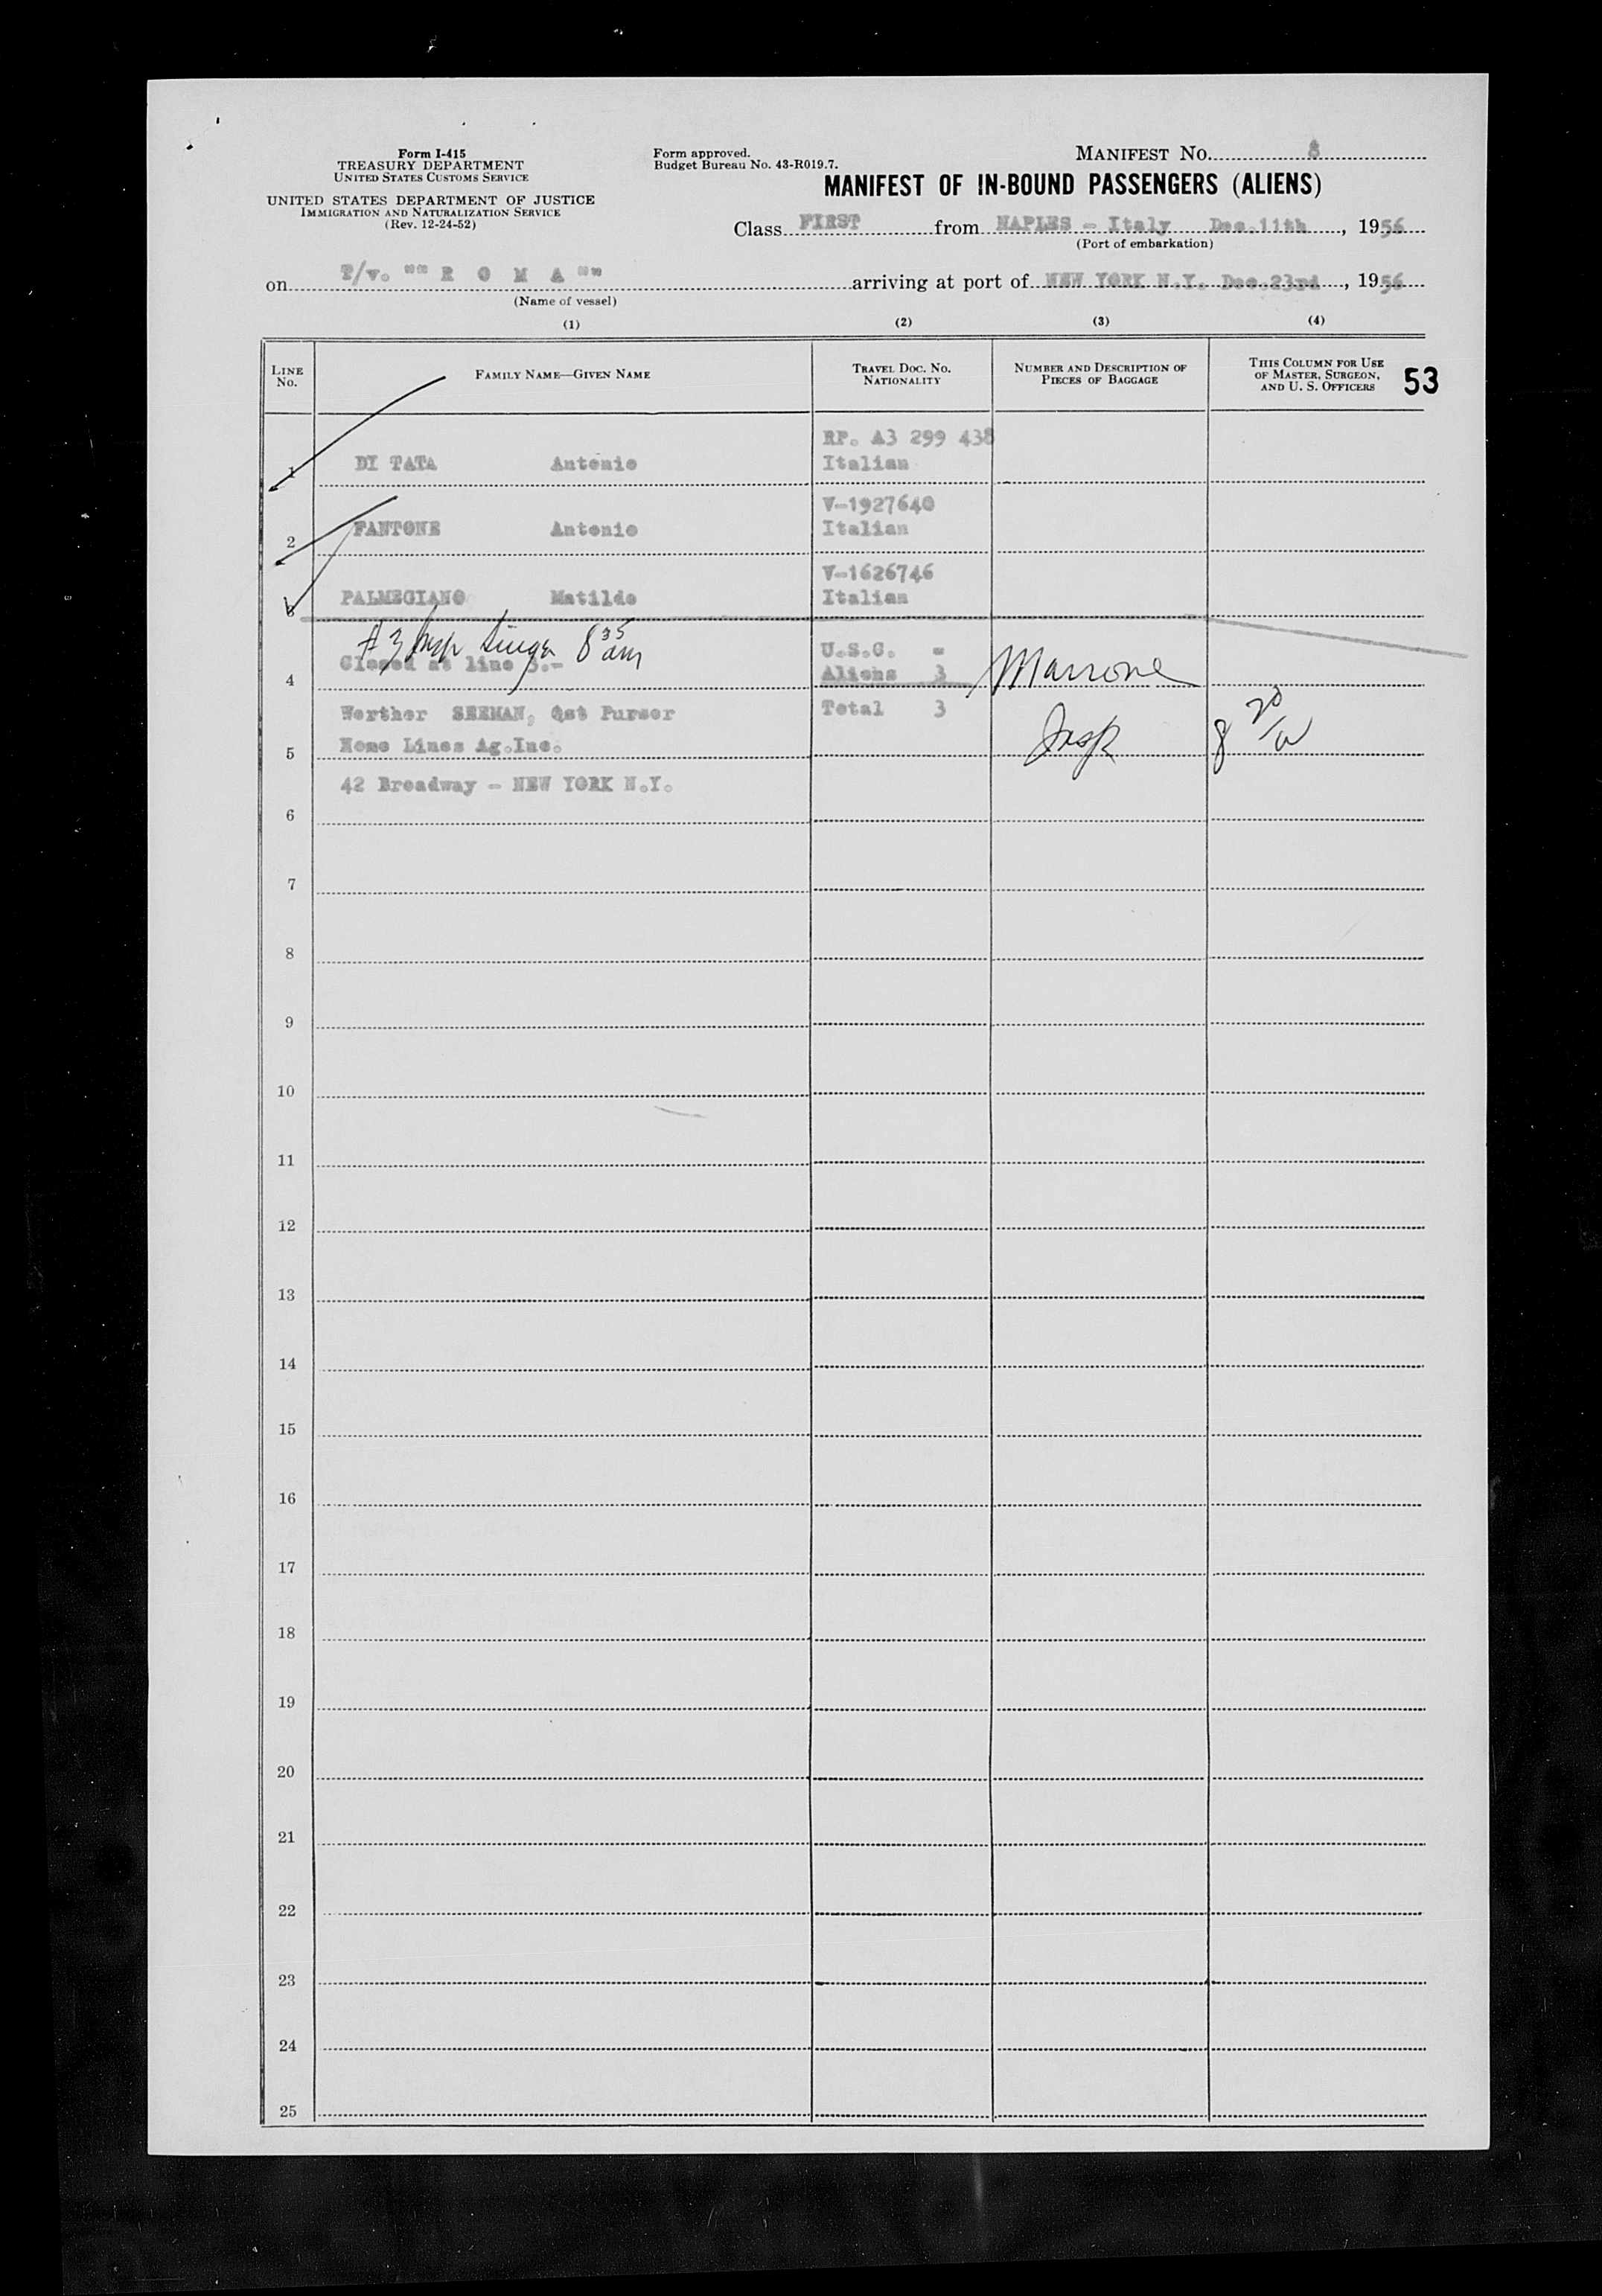 Form I-415
TREASURY DEPARTMENT
UNITED STATES CUSTOMS SERVICE
UNITED STATES DEPARTMENT OF JUSTICE
IMMIGRATION AND NATURALIZATION SERVICE
(Rev. 12-24-52)
Form approved.
Budget Bureau No. 43-R019.7.
MANIFEST NO. 8
MANIFEST OF IN-BOUND PASSENGERS (ALIENS)
Class FIRST from NAPLES - Italy Dec.11th, 1956
(Port of embarkation)
on T/v. "" R O M A "" arriving at port of NEW YORK N.Y. Dec.23rd, 1956
(Name of vessel)
(1) (2) (3) (4)
LINE No. FAMILY NAME—GIVEN NAME TRAVEL DOC. NO. NATIONALITY NUMBER AND DESCRIPTION OF PIECES OF BAGGAGE THIS COLUMN FOR USE OF MASTER, SURGEON, AND U. S. OFFICERS 53
RP. A3 299 438
1 DI TATA Antonio Italian
V-1927640
2 FANTONE Antonio Italian
V-1626746
3 PALMEGIANO Matilde Italian
#3 Insp 8 35 am
U.S.C. -
Closed at line 3.-
4 Aliens 3 Marrone
Werther SEEMAN, Qst Purser Total 3
5 Home Lines Ag.Inc. Insp 8 20
42 Broadway - NEW YORK N.Y.
6
7
8
9
10
11
12
13
14
15
16
17
18
19
20
21
22
23
24
25